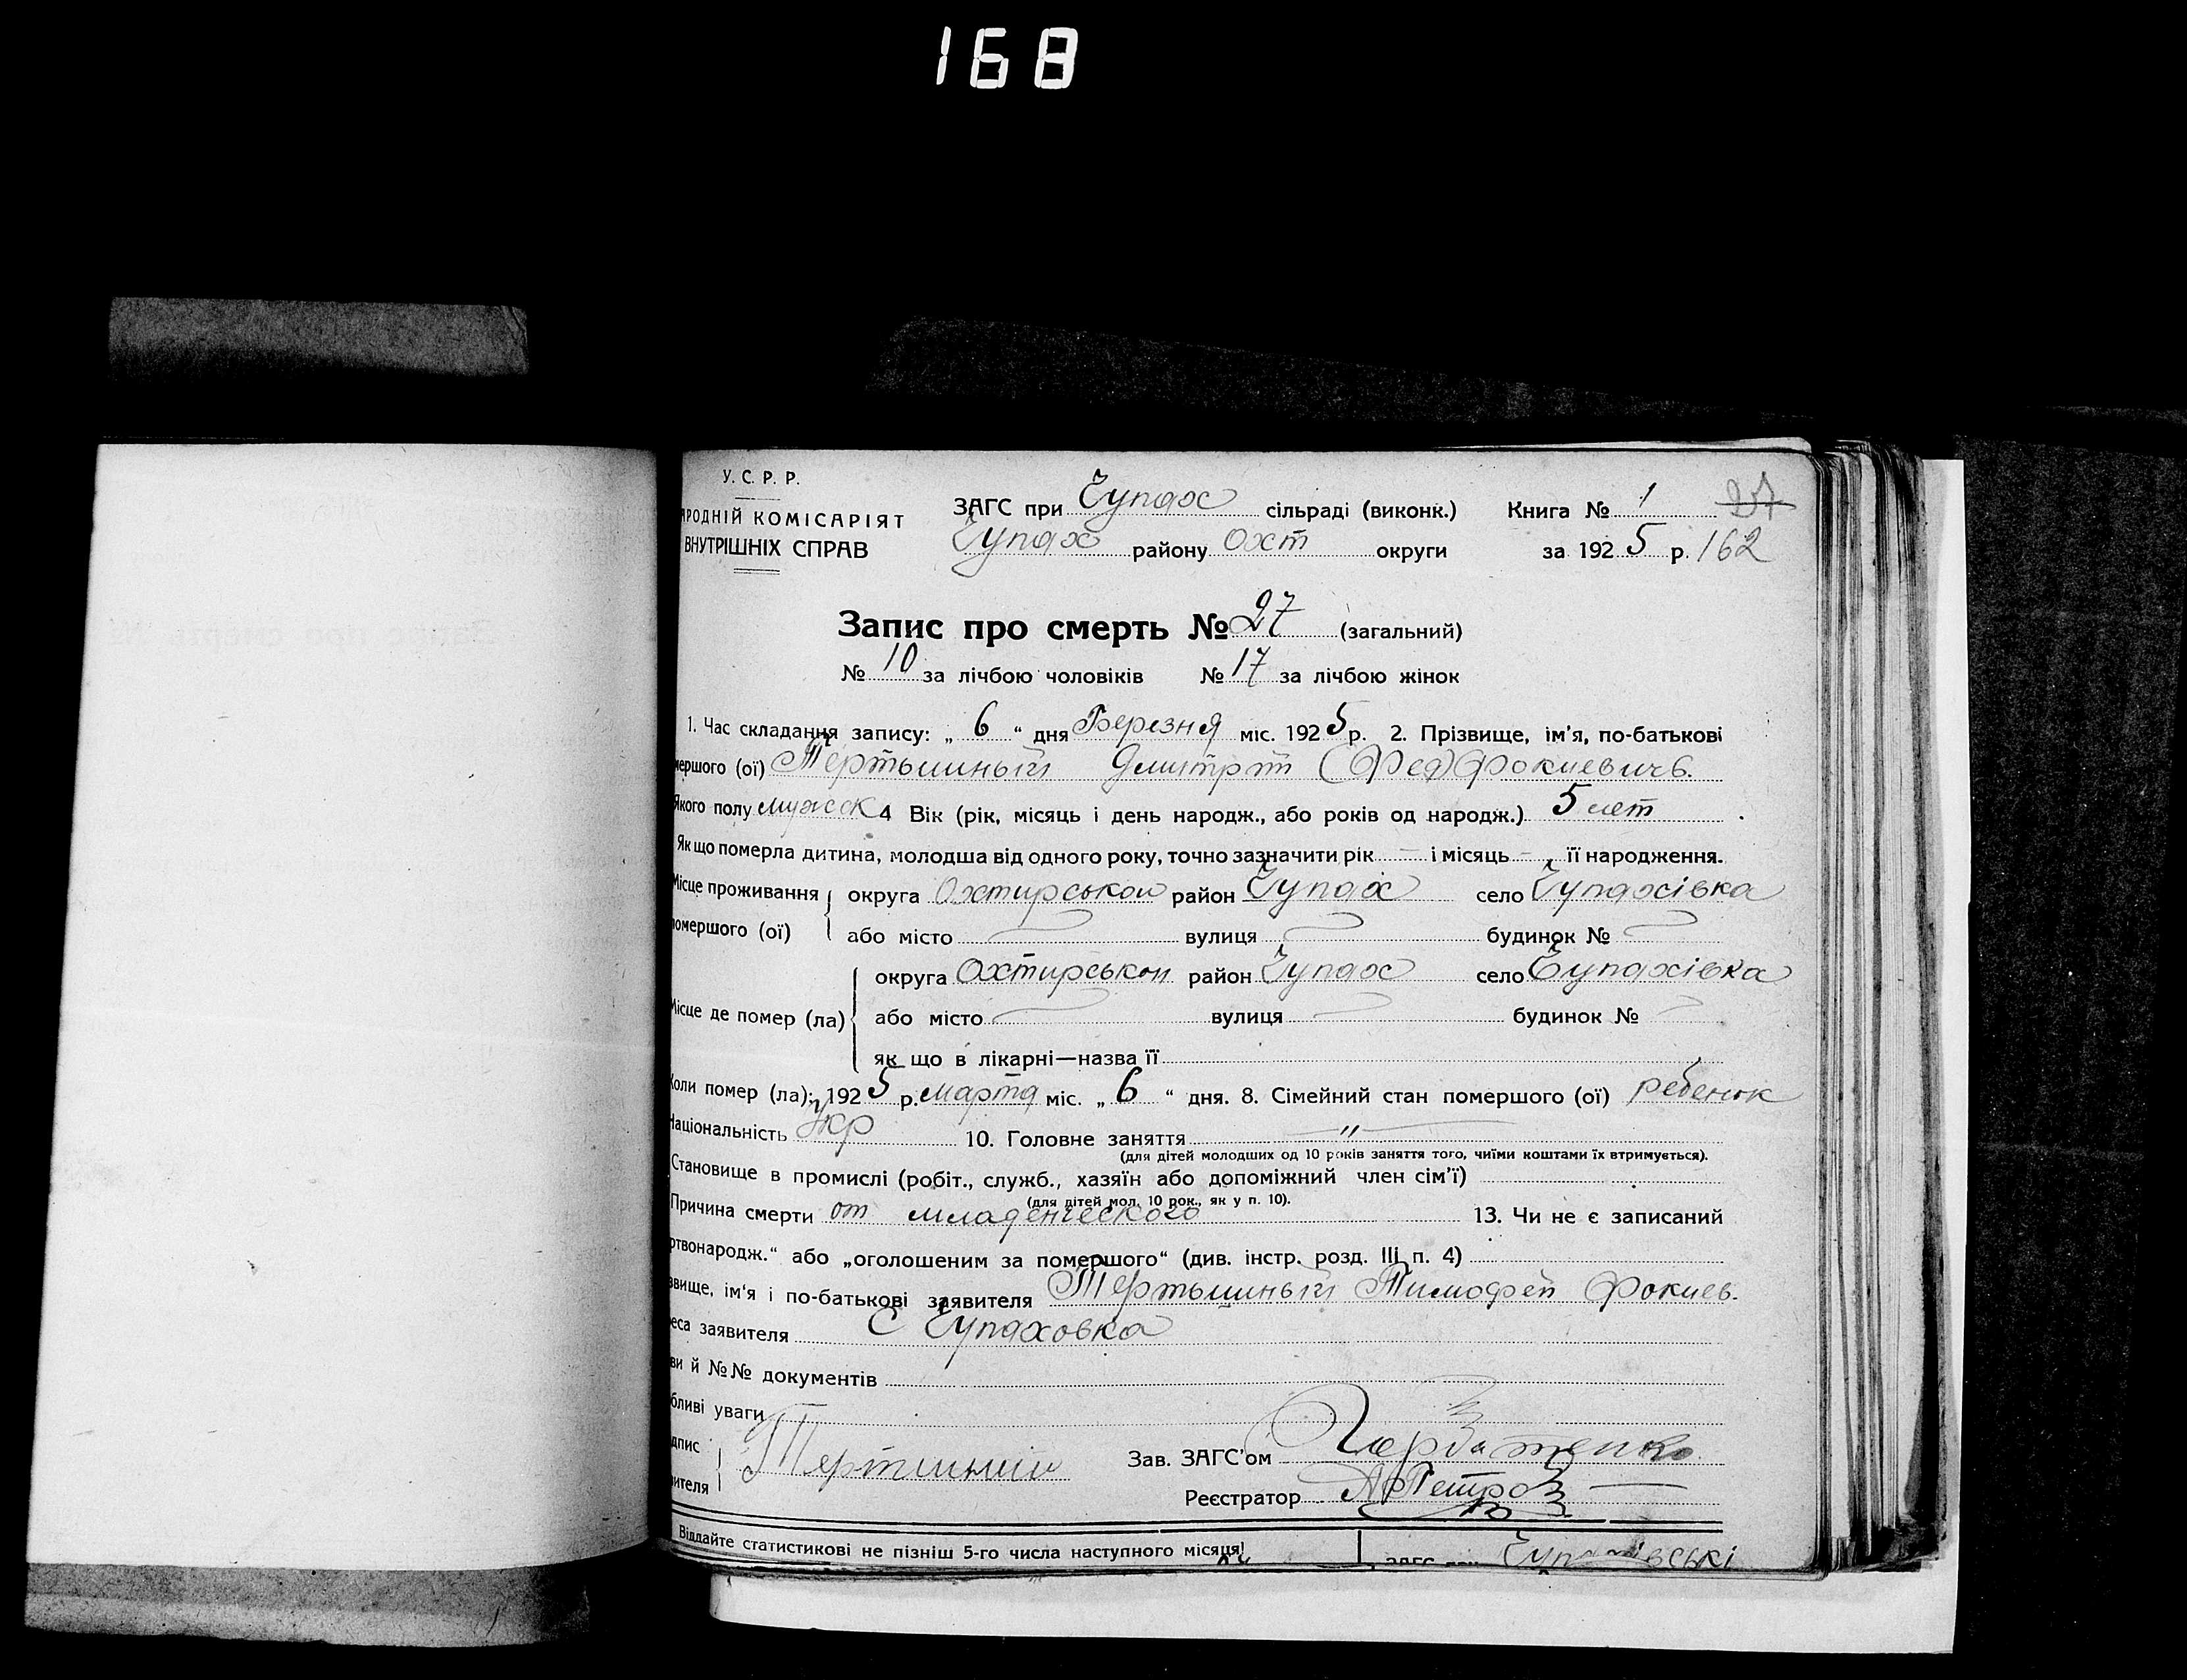 168
У. С. Р. Р.
АРОДНІЙ КОМІСАРІЯТ
ВНУТРІШНІХ СПРАВ
ЗАГС при Чупах сільраді (виконк.) Книга № 1 27
Чупах району Охт округи за 1925 р. 162
Запис про смерть № 27 (загальний)
№ 10 за лічбою чоловіків № 17 за лічбою жінок
1. Час складання запису: „ 6 “ дня Березня міс. 1925 р. 2. Прізвище, ім’я, по-батькові
мершого (ої) Тертышный Дмитрт (Фед) Фокиевичъ.
Якого полу мужск 4 Вік (рік, місяць і день народж., або років од народж.) 5 лет
Як що померла дитина, молодша від одного року, точно зазначити рік — і місяць — її народження.
Місце проживання округа Охтирськой район Чупах село Чупахівка
помершого (ої) або місто вулиця будинок №
округа Охтирськой район Чупах село Чупахівка
Місце де помер (ла) або місто вулиця будинок №
як що в лікарні—назва її
Коли помер (ла): 1925 р. марта міс. „ 6 “ дня. 8. Сімейний стан помершого (ої) ребенок
Національність Укр 10. Головне заняття — „ —
(для дітей молодших од 10 років заняття того, чиїми коштами їх втримується).
Становище в промислі (робіт., служб., хазяїн або допоміжний член сім’ї)
(для дітей мол. 10 рок., як у п. 10).
Причина смерти от младенческого 13. Чи не є записаний
ртвонародж.“ або „оголошеним за помершого“ (див. інстр. розд. III п. 4)
звище, ім’я і по-батькові заявителя Тертышный Тимофей Фокиев.
еса заявителя С Чупаховка
ви й №№ документів
бливі уваги
дпис
ителя Тертишний
Зав. ЗАГС’ом Горбатенко
Реєстратор А Петров
Віддайте статистикові не пізніш 5-го числа наступного місяця!
ЗАГС при Чупахівські